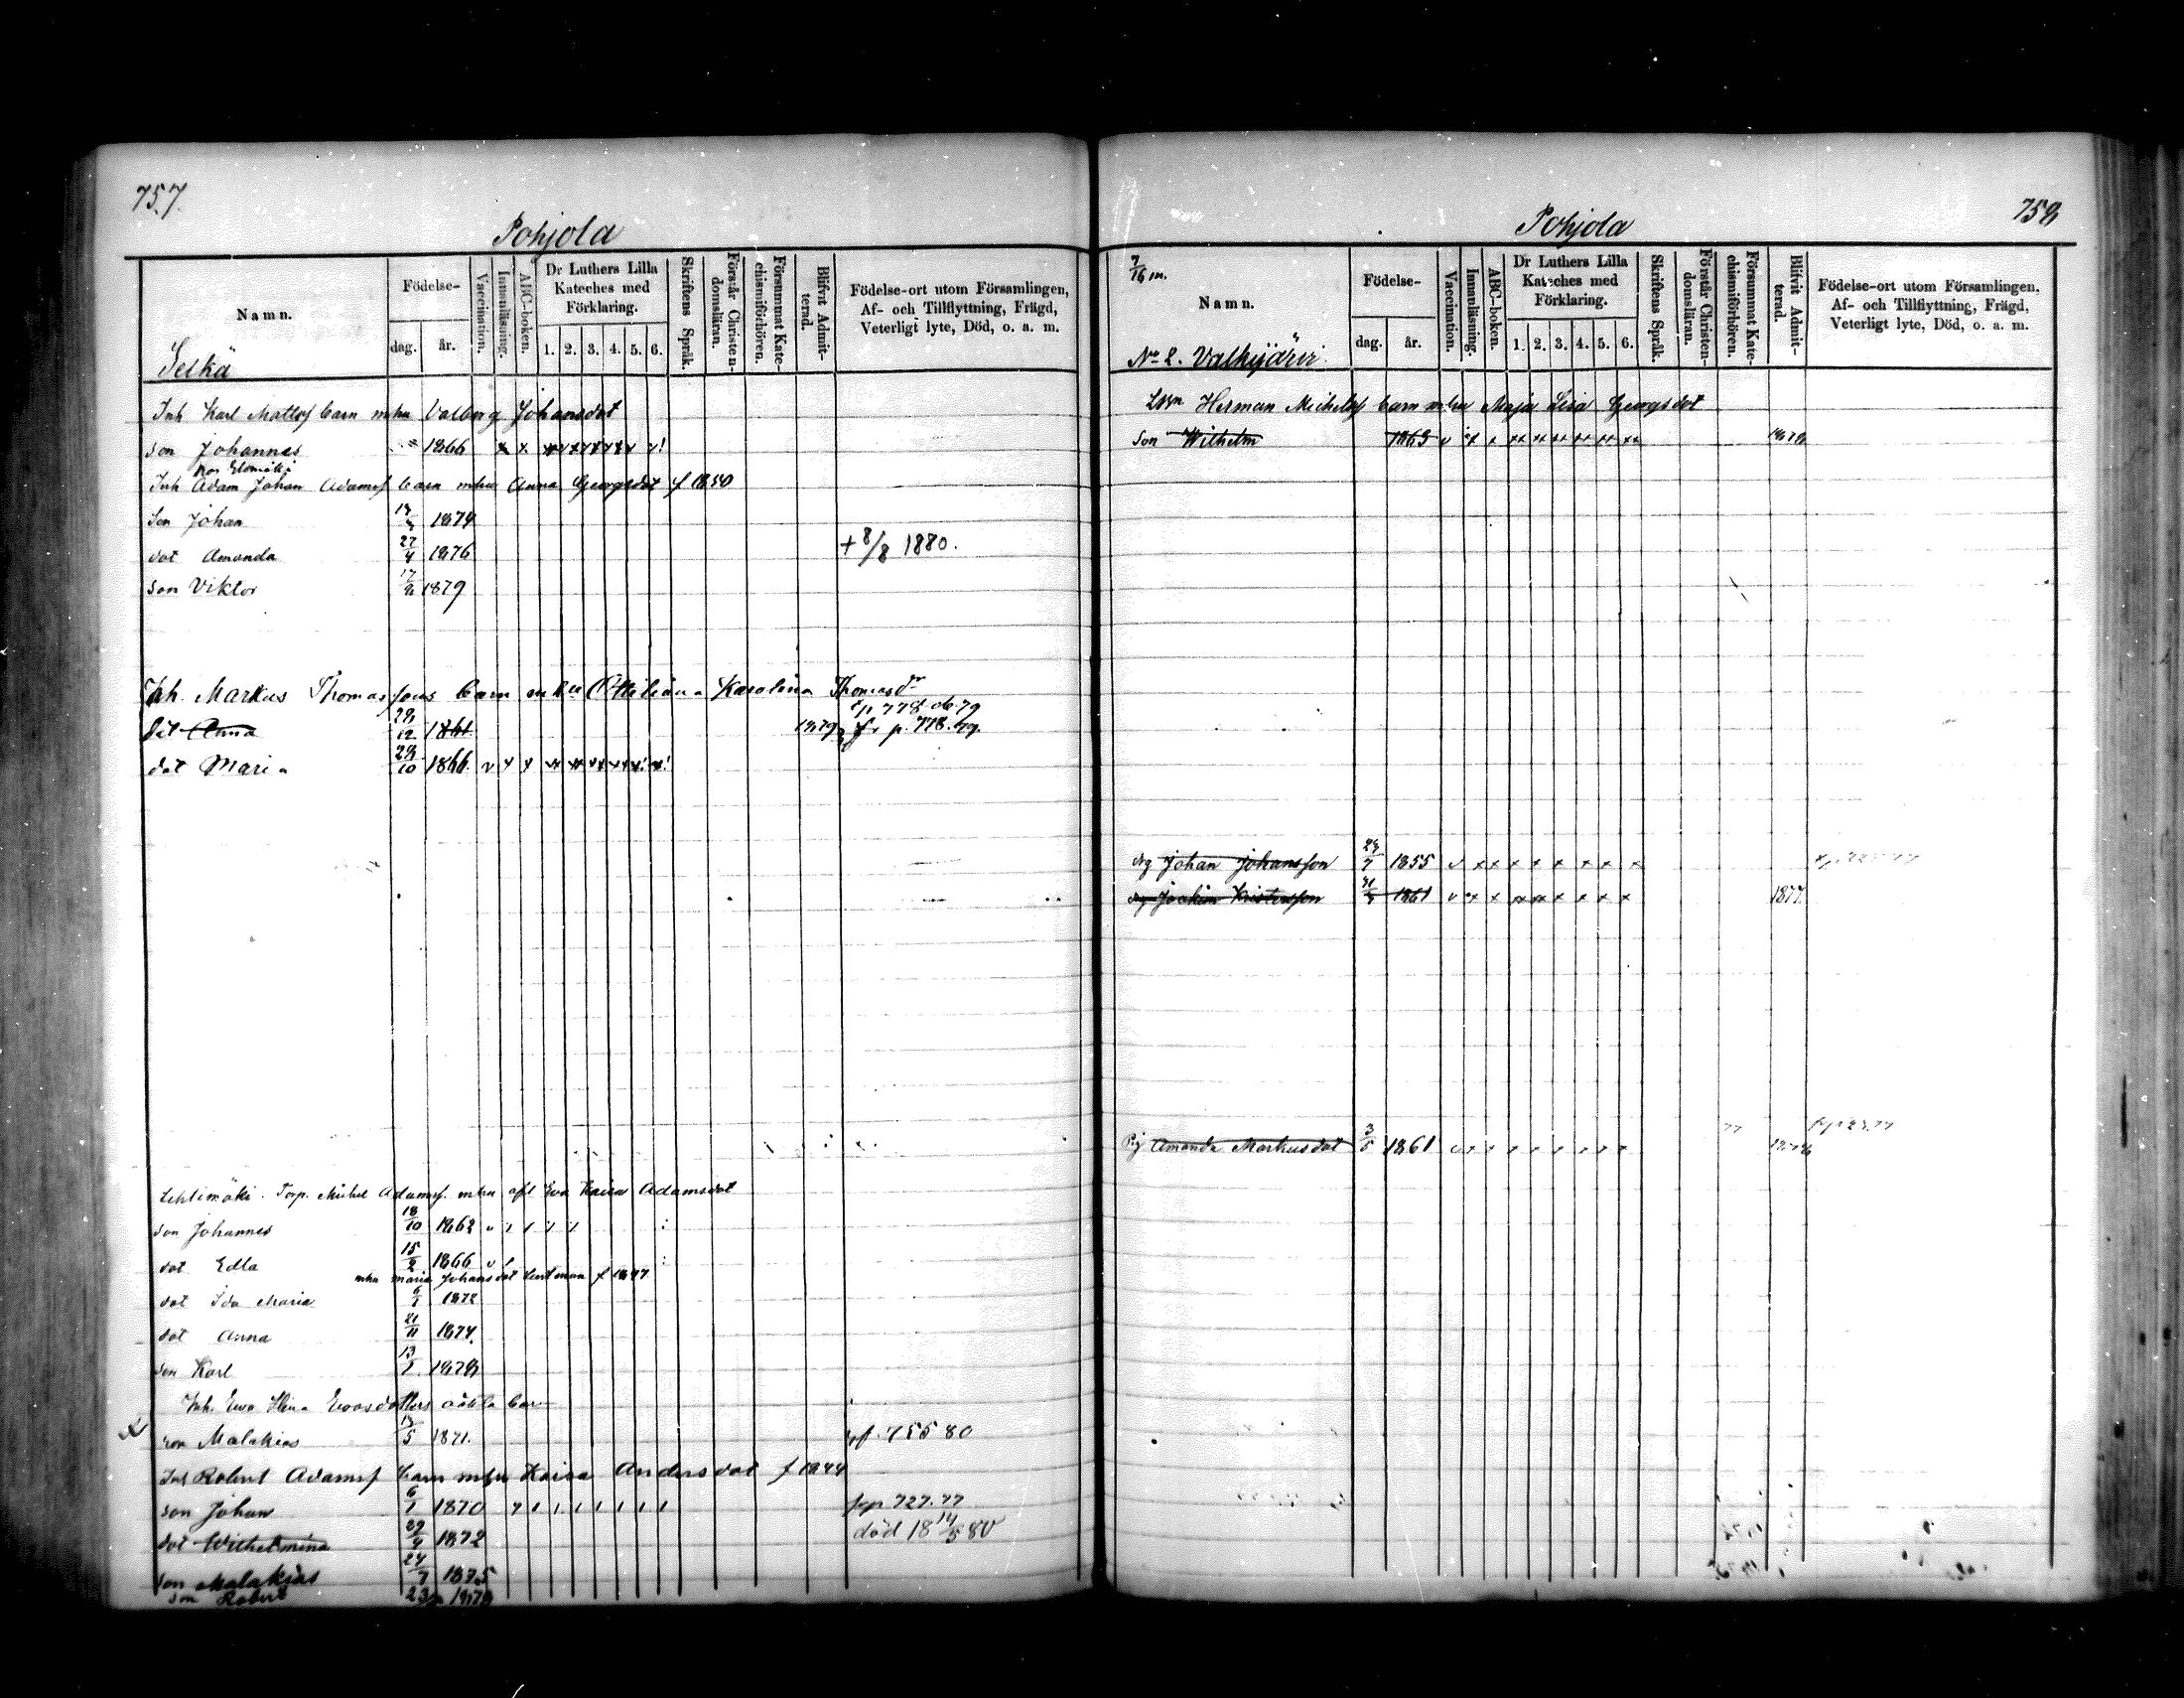 757.
Pohjola
Namn.
Födelse-
dag.
år.
Vaccination.
Innanläsning.
ABC-boken.
Dr Luthers Lilla
Kateches med
Förklaring.
1. 2. 3. 4. 5. 6.
Skriftens Språk.
Förstår Christen-
domsläran.
Försummat Kate-
chismiförhören.
Blifvit Admit-
terad.
Födelse-ort utom Församlingen,
Af- och Tillflyttning, Frägd,
Veterligt lyte, Död, o. a. m.
Selkä
Inh Karl Mattsf barn m hu Valborg Johansdot
son Johannes 1866
Inh Adam Johan Adamsf barn m hu Anna Georgsdot f 1850
Son Johan 1874
dot Amanda 27/4 1876 + 8/8 1880.
son Viktor 1879
Inh. Markus Thomas sons barn m hu Ottiliana Karolina Thomasdr
dot Anna 28/12 1861 1879 fr p. 778.79
dot Maria 28/10 1866
Lehtimäki. Torp. Michel Adamsf. m hu afl Eva Kaisa Adamsdot
son Johannes 18/10 1862
dot Edla 15/2 1866
m hu Maria Johansdot
dot Ida Maria 6/1 1872
dot Anna 21/11 1874.
son Karl 13/1 1878
Inh. Eva Elina Evasdotters oäkta barn
son Malakias 1871. 755 80
Inh Robert Adamsf barn m hu Kaisa Andersdot f 1844
son Johan 6/1 1870 727.77
dot Wilhelmina 29/4 1872 död 18 14/5 80
son Malakias 24/7 1875
son Robert
758
Pohjola
7/16 m.
Namn.
Födelse-
dag.
år.
Vaccination.
Innanläsning.
ABC-boken.
Dr Luthers Lilla
Kateches med
Förklaring.
1. 2. 3. 4. 5. 6.
Skriftens Språk.
Förstår Christen-
domsläran.
Försummat Kate-
chismiförhören.
Blifvit Admit-
terad.
Födelse-ort utom Församlingen,
Af- och Tillflyttning, Frägd,
Veterligt lyte, Död, o. a. m.
No 2. Valkijärvi
Herman Michelsf barn m hu Maja Lisa Georgsdot
Son Wilhelm 1863 1878
drg Johan Johansson 1855
drg Joakim Kristersson 1861 1877
Pig Amanda Markusdot 3/5 1861